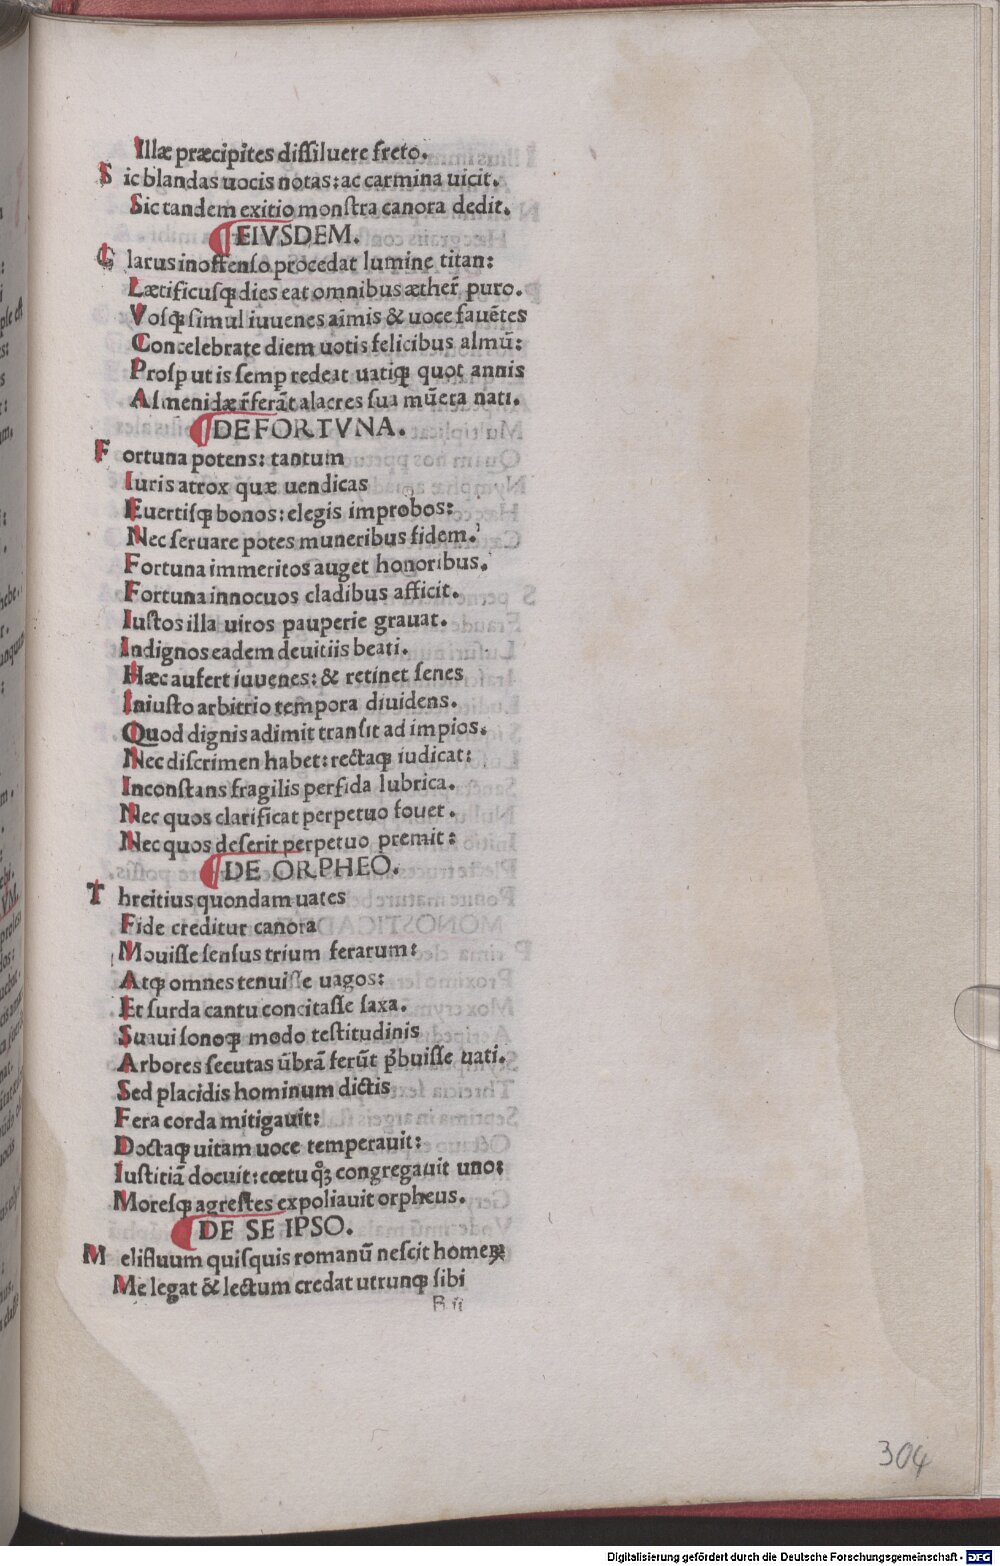 Illæ præcipites dissiluere freto.
S ic blandas uocis notas: ac carmina uicit.
Sic tandem exitio monstra canora dedit.
¶EIVSDEM.
C larus inoffenso procedat lumine titan:
Lætificusq̃ dies eat omnibus æther̃ puro.
Vosq̃ simul iuuenes aĩmis & uoce fauẽtes
Concelebrate diem uotis felicibus almũ:
Prosp ut is semp redeat uatiq̃ quot annis
Almenidæ r̃ferãt alacres sua mũera nati.
¶DE FORTVNA.
F ortuna potens: tantum
Iuris atrox quæ uendicas
Euertisq̃ bonos: elegis improbos:
Nec seruare potes muneribus fidem.
Fortuna immeritos auget honoribus.
Fortuna innocuos cladibus afficit.
Iustos illa uiros pauperie grauat.
Indignos eadem deuitiis beati.
Hæc aufert iuuenes: & retinet senes
Iniusto arbitrio tempora diuidens.
Quod dignis adimit transit ad impios.
Nec discrimen habet: rectaq̃ iudicat:
Inconstans fragilis perfida lubrica.
Nec quos clarificat perpetuo fouet.
Nec quos deserit perpetuo premit:
¶DE ORPHEO.
T hreitius quondam uates
Fide creditur canora
Mouisse sensus trium ferarum:
Atq̃ omnes tenuisse uagos:
Et surda cantu concitasse saxa.
Suaui sonoq̃ modo testitudinis
Arbores secutas ũbrã ferũt p̃buisse uati.
Sed placidis hominum dictis
Fera corda mitigauit:
Doctaq̃ uitam uoce temperauit:
Iustitiã docuit: cœtu q̊ꝫ congregauit uno:
Moresq̃ agrestes expoliauit orpheus.
¶DE SE IPSO.
M elifluum quisquis romanũ nescit homeꝝ
Me legat & lectum credat utrunq̃ sibi
B ii
304
Digitalisierung gefördert durch die Deutsche Forschungsgemeinschaft - DFG